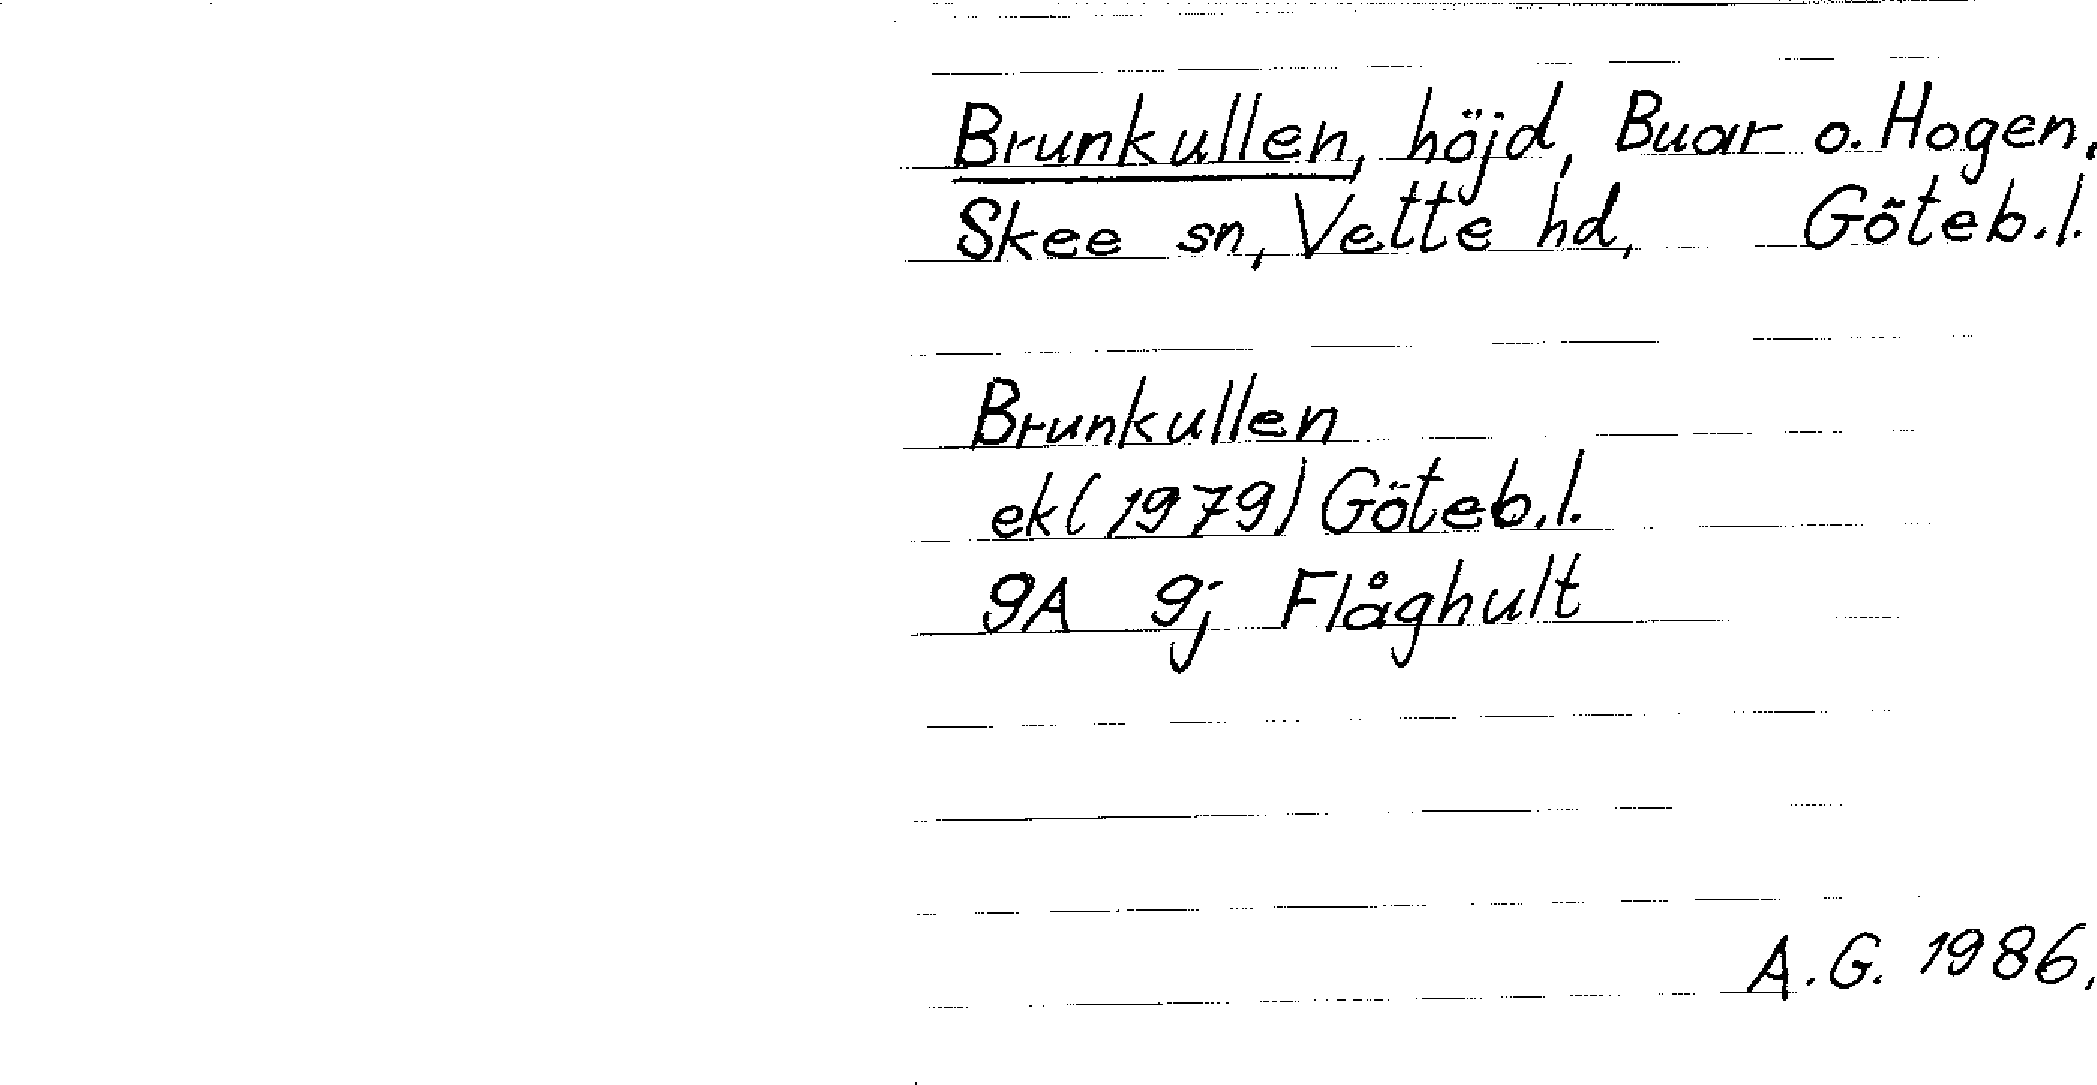 Brunkullen, höjd, Buar o. Hogen,
Skee sn, Vette hd, Göteb.l.
Brunkullen
ek(1979) Göteb.l.
9A 9j Flåghult
A.G. 1986.